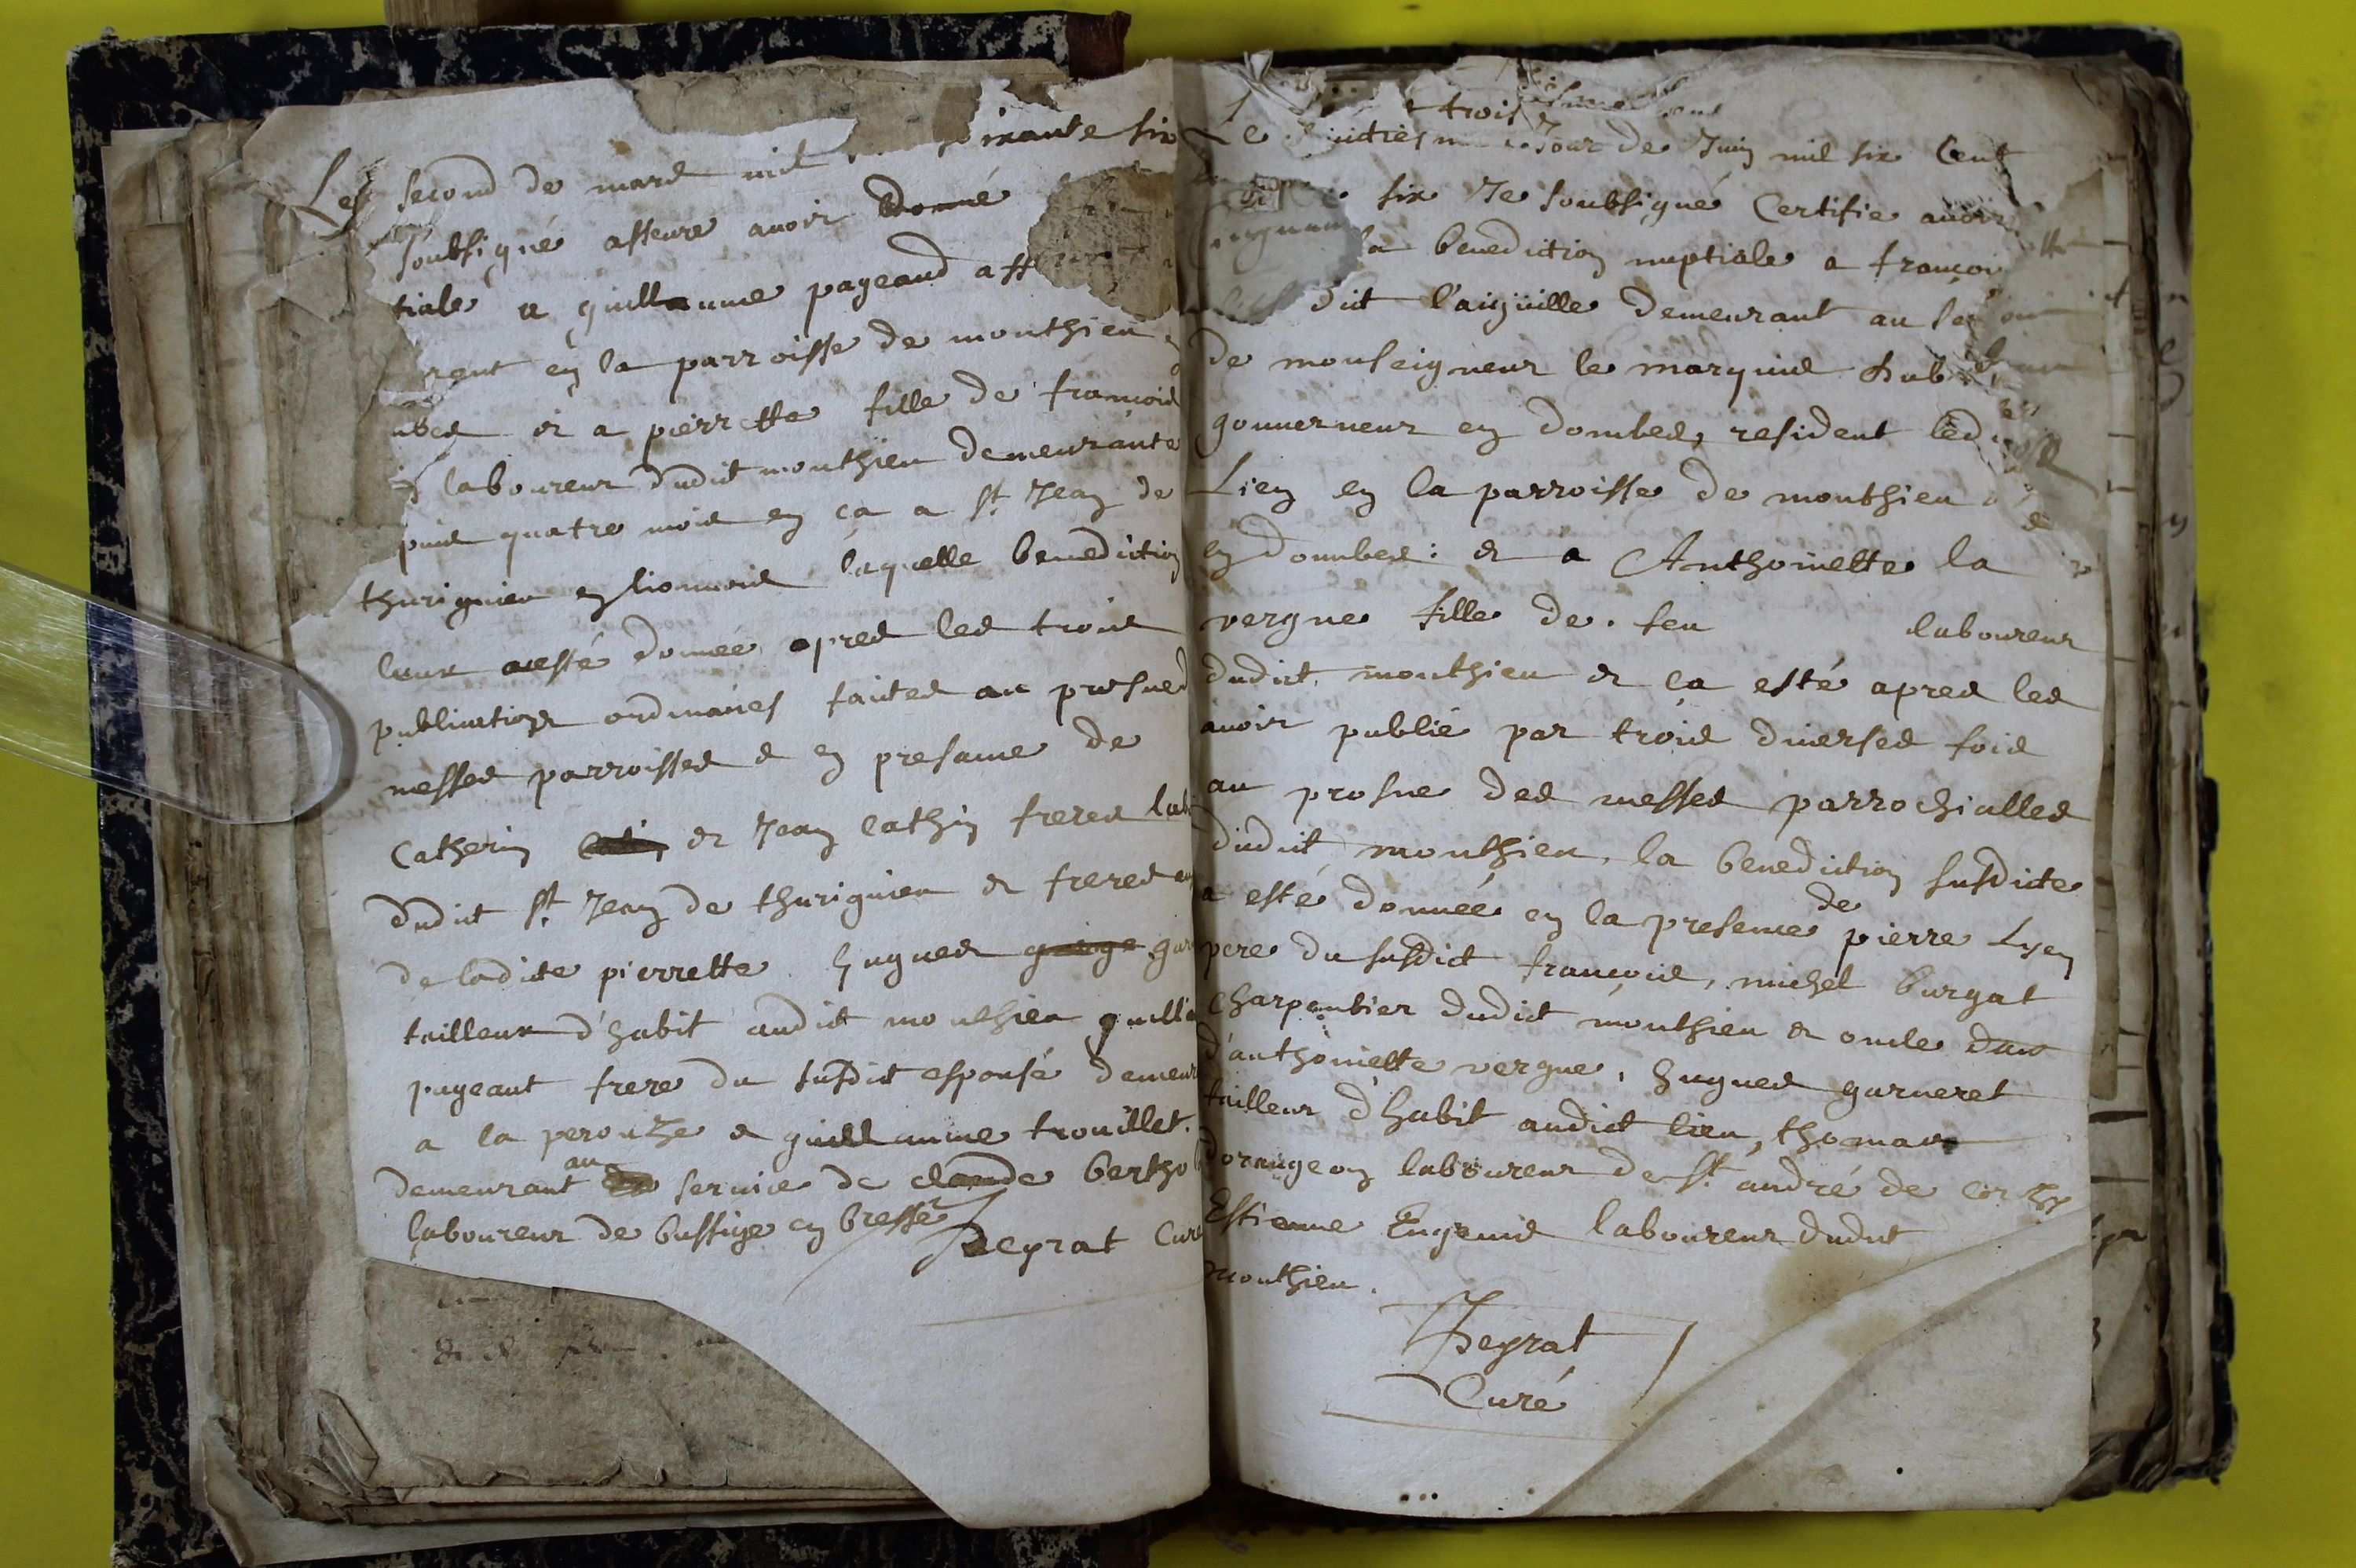 Le second de mars mil ixante six
soubsigné asseure avoir donné
tiale a guillaume pageaud aff
rent en la parroisse de monthieu
ubes et a pierrette fille de françois
laboureur dudict monthieu demeurante
puis quatre mois en ça a st Jean de
thurignieu en lionnois laquelle benediction
leur a esté donnée apres les trois
publications ordinaires faites au prosnes
messes parroisses & en presance de
Catherin et Jean Cathin freres lab
dudict st Jean de thurignieu et freres
de ladite pierrette hugues gar
tailleur d'habit audict monthieu guill
pageant frere du susdict espousé demeur
a la perouze & guillaume trouillet
demeurant au service de claude bertho
laboureur de bussige en bresse
Peyrat Curé
trois
Le jour de Juin mil six Cent
six Je soubsigné Certifie avoir
la benediction nuptiale a françoi
dit l'aiguille demeurant au se
de monseigneur le marquis
gouverneur en dombes, resident
Lieu en la parroisse de monthieu
en dombes: et a Anthoinette la
vergne fille de feu laboureur
dudict monthieu et ça esté apres les
avoir publié par trois diverses fois
au prosne des messes parrochialles
dudict monthieu, la benediction susdicte
a esté donnée en la presence de pierre Lyen
pere du susdict françois, michel burgat
charpentier dudict monthieu et oncle
d'anthoinette vergne, hugues garneret
tailleur d'habit audict lieu, thomas
dorangeon laboureur de st andré de corzy
Estienne Eugenis laboureur dudict
monthieu.
Peyrat
Curé